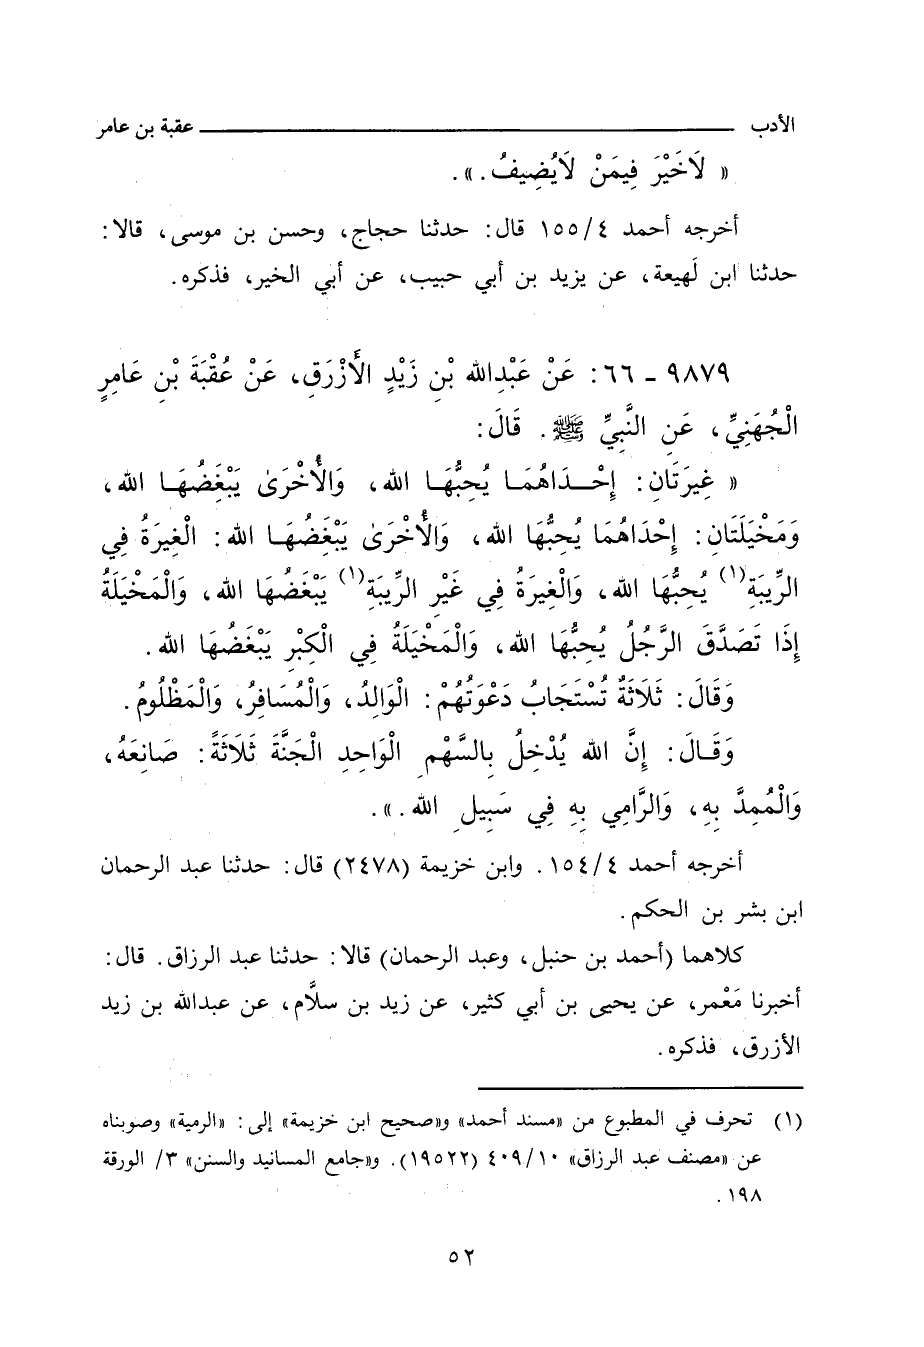 الأدب ــــــــــ عقبة بن عامر
« لَاخَيْرَ فِيمَنْ لَايُضِيفُ . » .
أخرجه أحمد ١٥٥/٤ قال : حدثنا حجاج ، وحسن بن موسى ، قالا :
حدثنا ابن لَهيعة ، عن يزيد بن أبي حبيب ، عن أبي الخير ، فذكره .
٩٨٧٩ ـ ٦٦ : عَنْ عَبْدِالله بْنِ زَيْدٍ الأَزْرَقِ ، عَنْ عُقْبَةَ بْنِ عَامِرٍ
الْجُهَنِيِّ ، عَنِ النَّبِيِّ ﷺ . قَالَ :
« غِيرَتَانِ : إِحْدَاهُمَا يُحِبُّهَا الله ، وَالأُخْرَىٰ يَبْغَضُهَا الله ،
وَمَخْيَلَتَانِ : إِحْدَاهُمَا يُحِبُّهَا الله ، وَالأُخْرَىٰ يَبْغَضُهَا الله : الْغِيرَةُ فِي
الرِّيبَةِ(١) يُحِبُّهَا الله ، وَالْغِيرَةُ فِي غَيْرِ الرِّيبَةِ(١) يَبْغَضُهَا الله ، وَالْمَخْيَلَةُ
إِذَا تَصَدَّقَ الرَّجُلُ يُحِبُّهَا الله ، وَالْمَخْيَلَةُ فِي الْكِبْرِ يَبْغَضُهَا الله .
وَقَالَ : ثَلَاثَةٌ تُسْتَجَابُ دَعْوَتُهُمْ : الْوَالِدُ ، وَالْمُسَافِرُ ، وَالْمَظْلُومُ .
وَقَالَ : إِنَّ الله يُدْخِلُ بِالسَّهْمِ الْوَاحِدِ الْجَنَّةَ ثَلَاثَةً : صَانِعَهُ ،
وَالْمُمِدَّ بِهِ ، وَالرَّامِي بِهِ فِي سَبِيلِ الله . » .
أخرجه أحمد ١٥٤/٤ . وابن خزيمة (٢٤٧٨) قال : حدثنا عبد الرحمان
ابن بشر بن الحكم .
كلاهما (أحمد بن حنبل ، وعبد الرحمان) قالا : حدثنا عبد الرزاق . قال :
أخبرنا مَعْمر ، عن يحيى بن أبي كثير ، عن زيد بن سلَّام ، عن عبدالله بن زيد
الأزرق ، فذكره .
(١) تحرف في المطبوع من «مسند أحمد» و«صحيح ابن خزيمة» إلى : «الرمية» وصوبناه
عن «مصنف عبد الرزاق» ٤٠٩/١٠ (١٩٥٢٢) . و«جامع المسانيد والسنن» ٣/ الورقة
١٩٨ .
٥٢